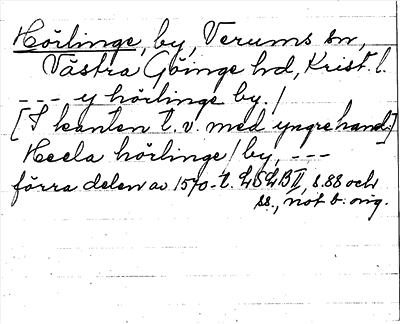 Hörlinge, by, Verums sn,
Västra Göinge hd, Krist. l.
--- y hörlinge by. /
[I kanten t. v. med yngre hand:]
Heela hörlinge / by, ---
förra delen av 1570-t. LSLB II, s. 88 och
ss., not b. orig.